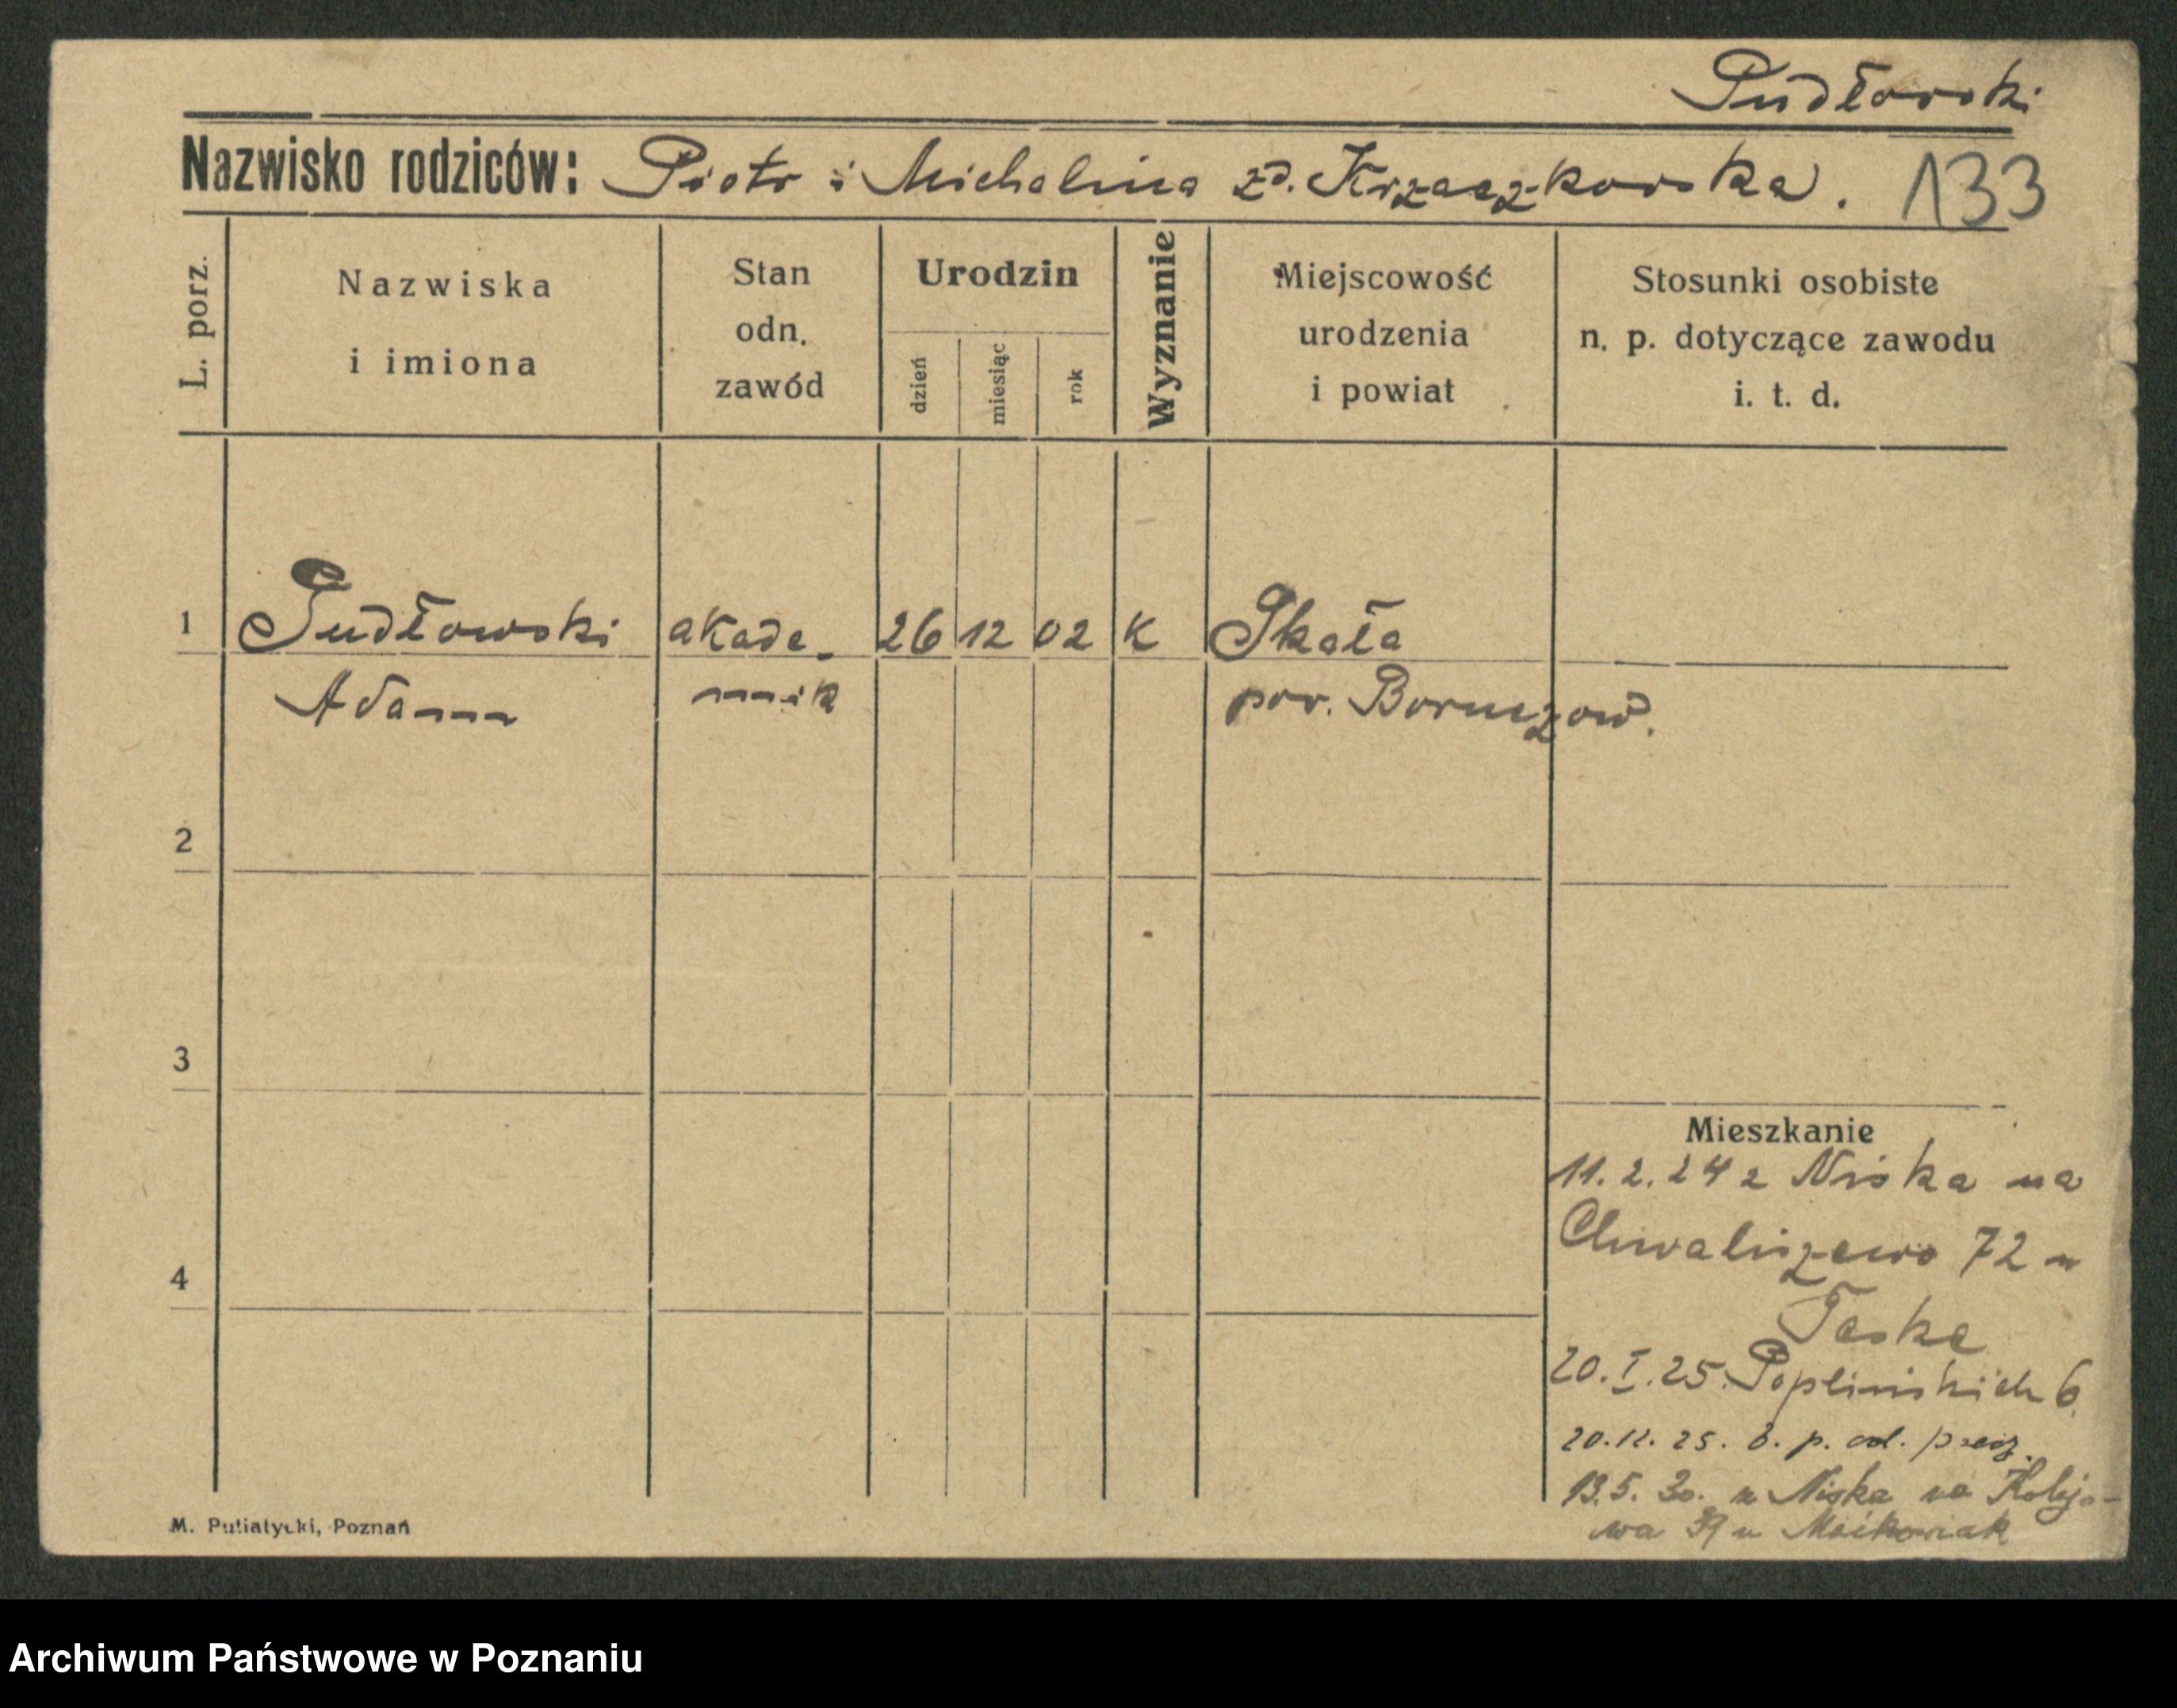 Pudłowski
Nazwisko rodziców: Piotr i Michalina zd. Krzaczkowska. 133
L. porz.
Nazwiska
i imiona
Stan
odn.
zawód
Urodzin
dzień
miesiąc
rok
Wyznanie
Miejscowość
urodzenia
i powiat
Stosunki osobiste
n. p. dotyczące zawodu
i. t. d.
1 Pudłowski akade- 26 12 02 K Skała
Adam mik pow. Borszczow.
2
3
4
Mieszkanie
11.2.24 z Niska na
Chwaliszewo 72 u
Taske
20.I.25. Poplińskich 6.
20.11.25. b. p. od.
13.5.30. z Niska na Kolejo-
wa 39 u Maćkowiak
M. Putiatycki, Poznań
Archiwum Państwowe w Poznaniu